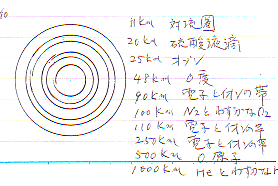 60
11Km 対流圏
20Km 硫酸液滴
25Km オゾン
48Km 0度
90Km 電子と付ソの帯
100Km N2とわずかなO2
110Km 電子と付ソの帯
250Km 電子と付ソの帯
500Km O原子
1000Km Heとわずかな